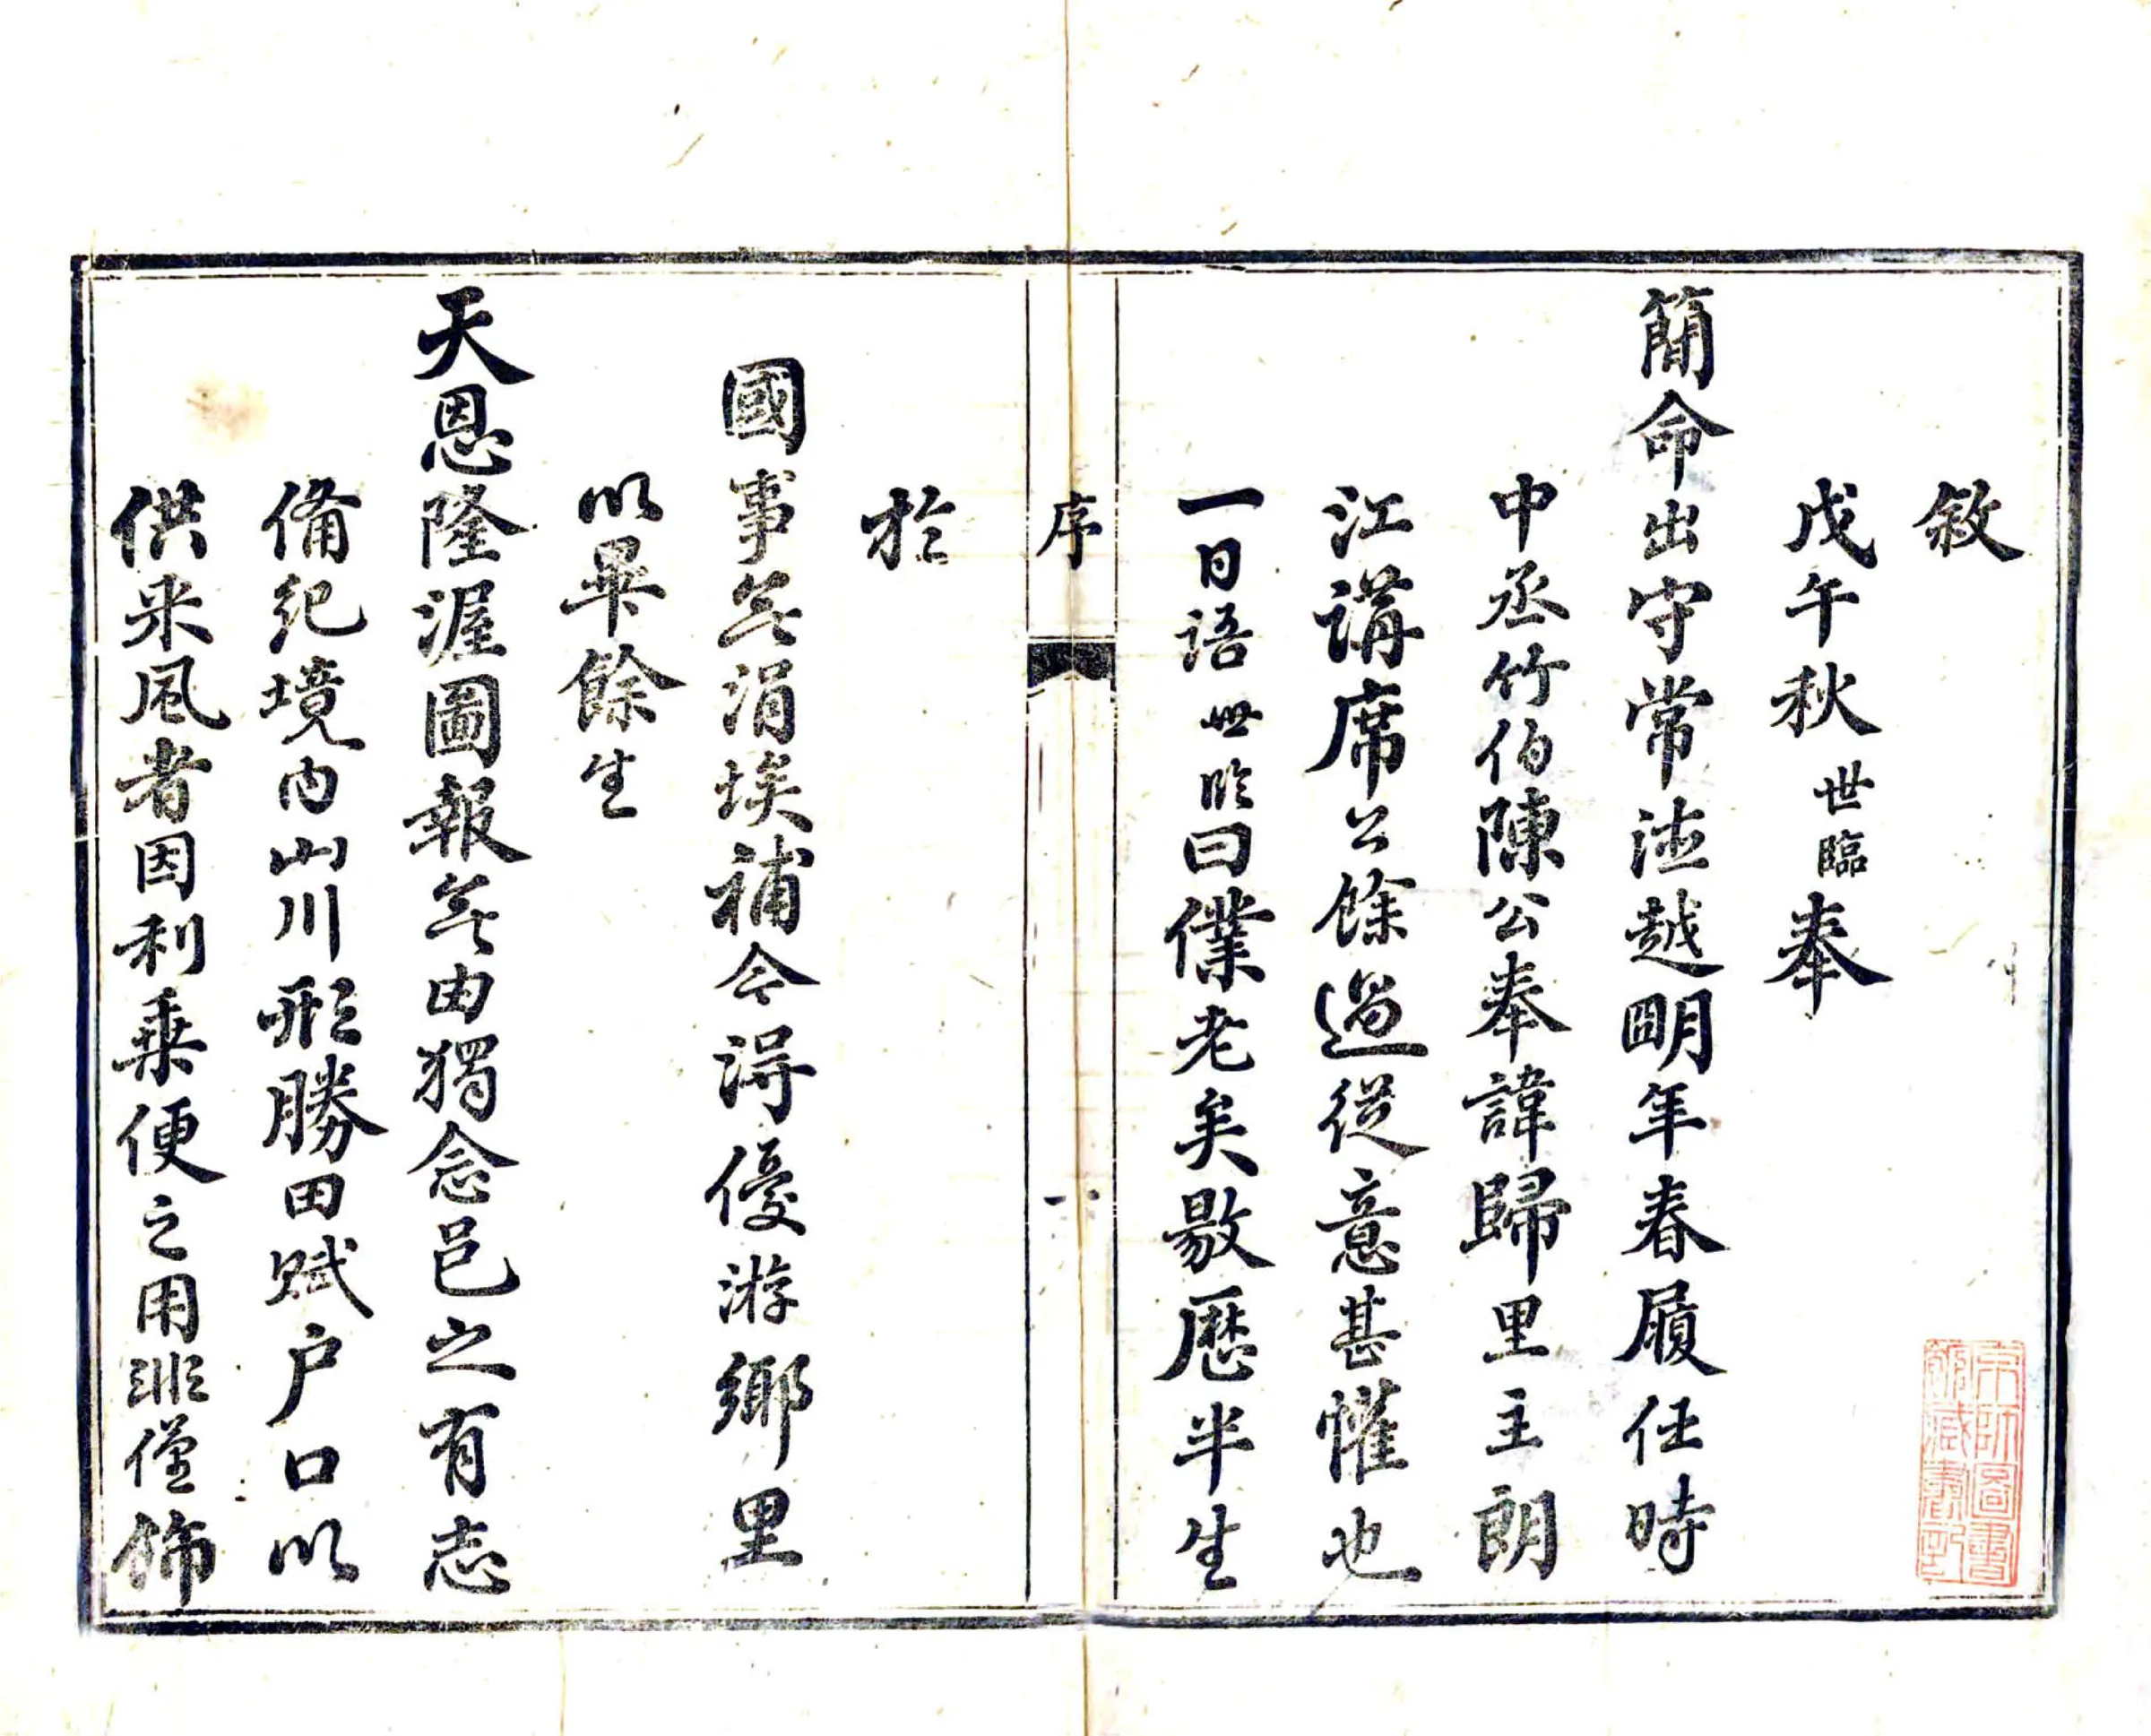 敘
戊午秋世臨奉
簡命出守常德越明年春履任時
中丞竹伯陳公奉諱歸里主朗
江講席公餘過從意甚懽也
一日語世臨曰僕老矣敭歷半生
序
一
於
國事無涓埃補今得優游鄉里
以畢餘生
天恩隆渥圖報無由獨念邑之有志
備紀境內山川形勝田賦戶口以
供采風者因利乘便之用非僅飾
京師圖書
館藏書印